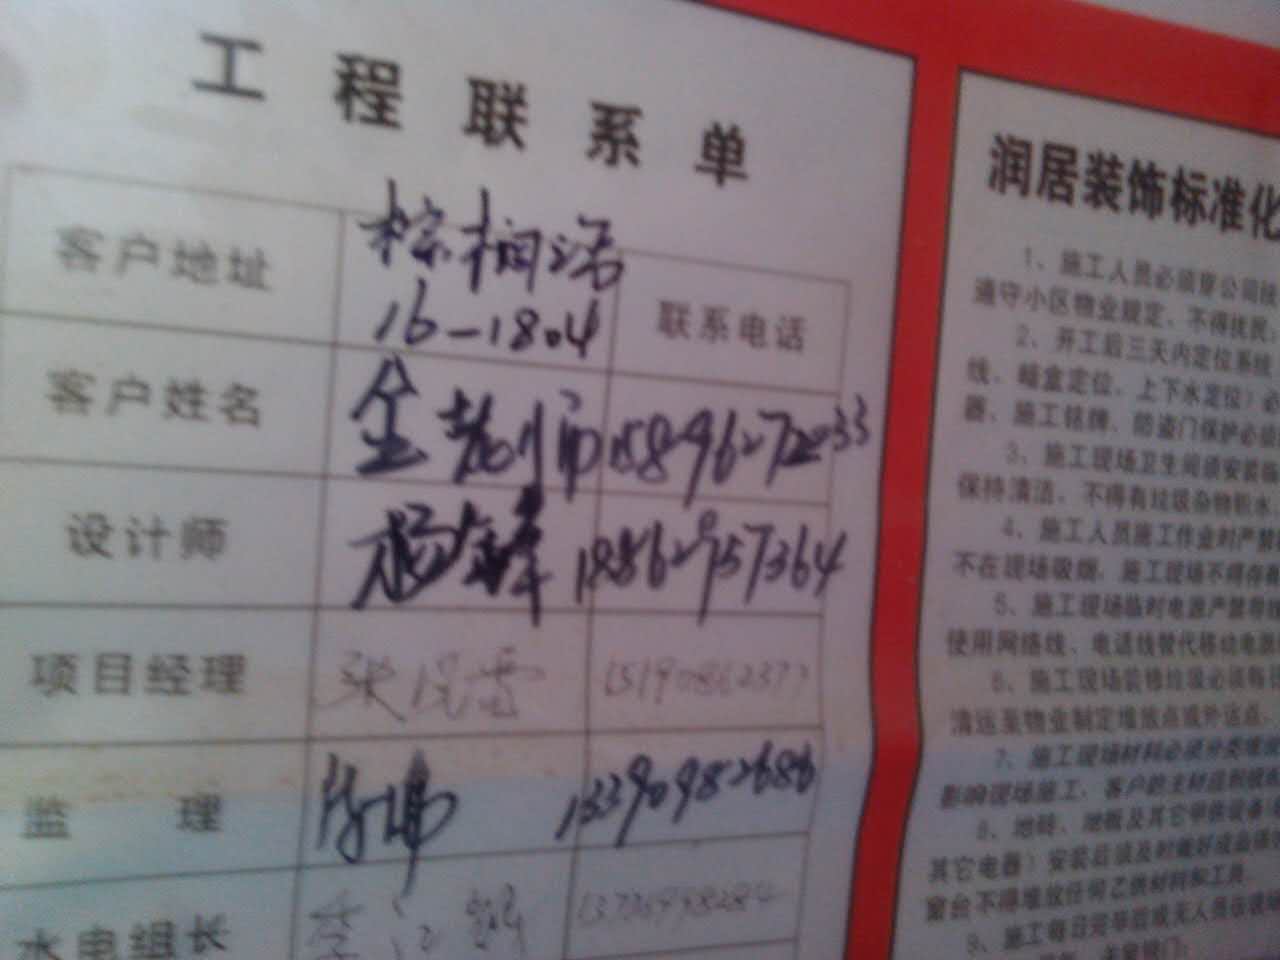 工程联系单
客户地址
棕榈湾
16-1804
联系电话
客户姓名
金老师
设计师
杨
18862957364
项目经理
15190862377
监 理
13390982686
水电组长
润居装饰标准化
1、施工人员必须穿公司
遵守小区物业规定、不得扰民;
2、开工后三天内定位系统
线、暗盒定位、上下水定位）必
器、施工铭牌、防盗门保护必须
3、施工现场卫生间须安装临
保持清洁、不得有垃圾杂物积水
4、施工人员施工作业时严禁
不在现场吸烟、施工现场不得存有
5、施工现场临时电源严禁
使用网络线、电话线替代移动电源
6、施工现场装修垃圾必须每日
清运至物业制定堆放点或外运点、
7、施工现场材料必须分类堆放
影响现场施工、客户的主材
8、地砖、地板及其它甲供设备
其它电器）安装后须及时做好成品保
窗台不得堆放任何乙供材料和工具
9、施工每日完毕后或无人员